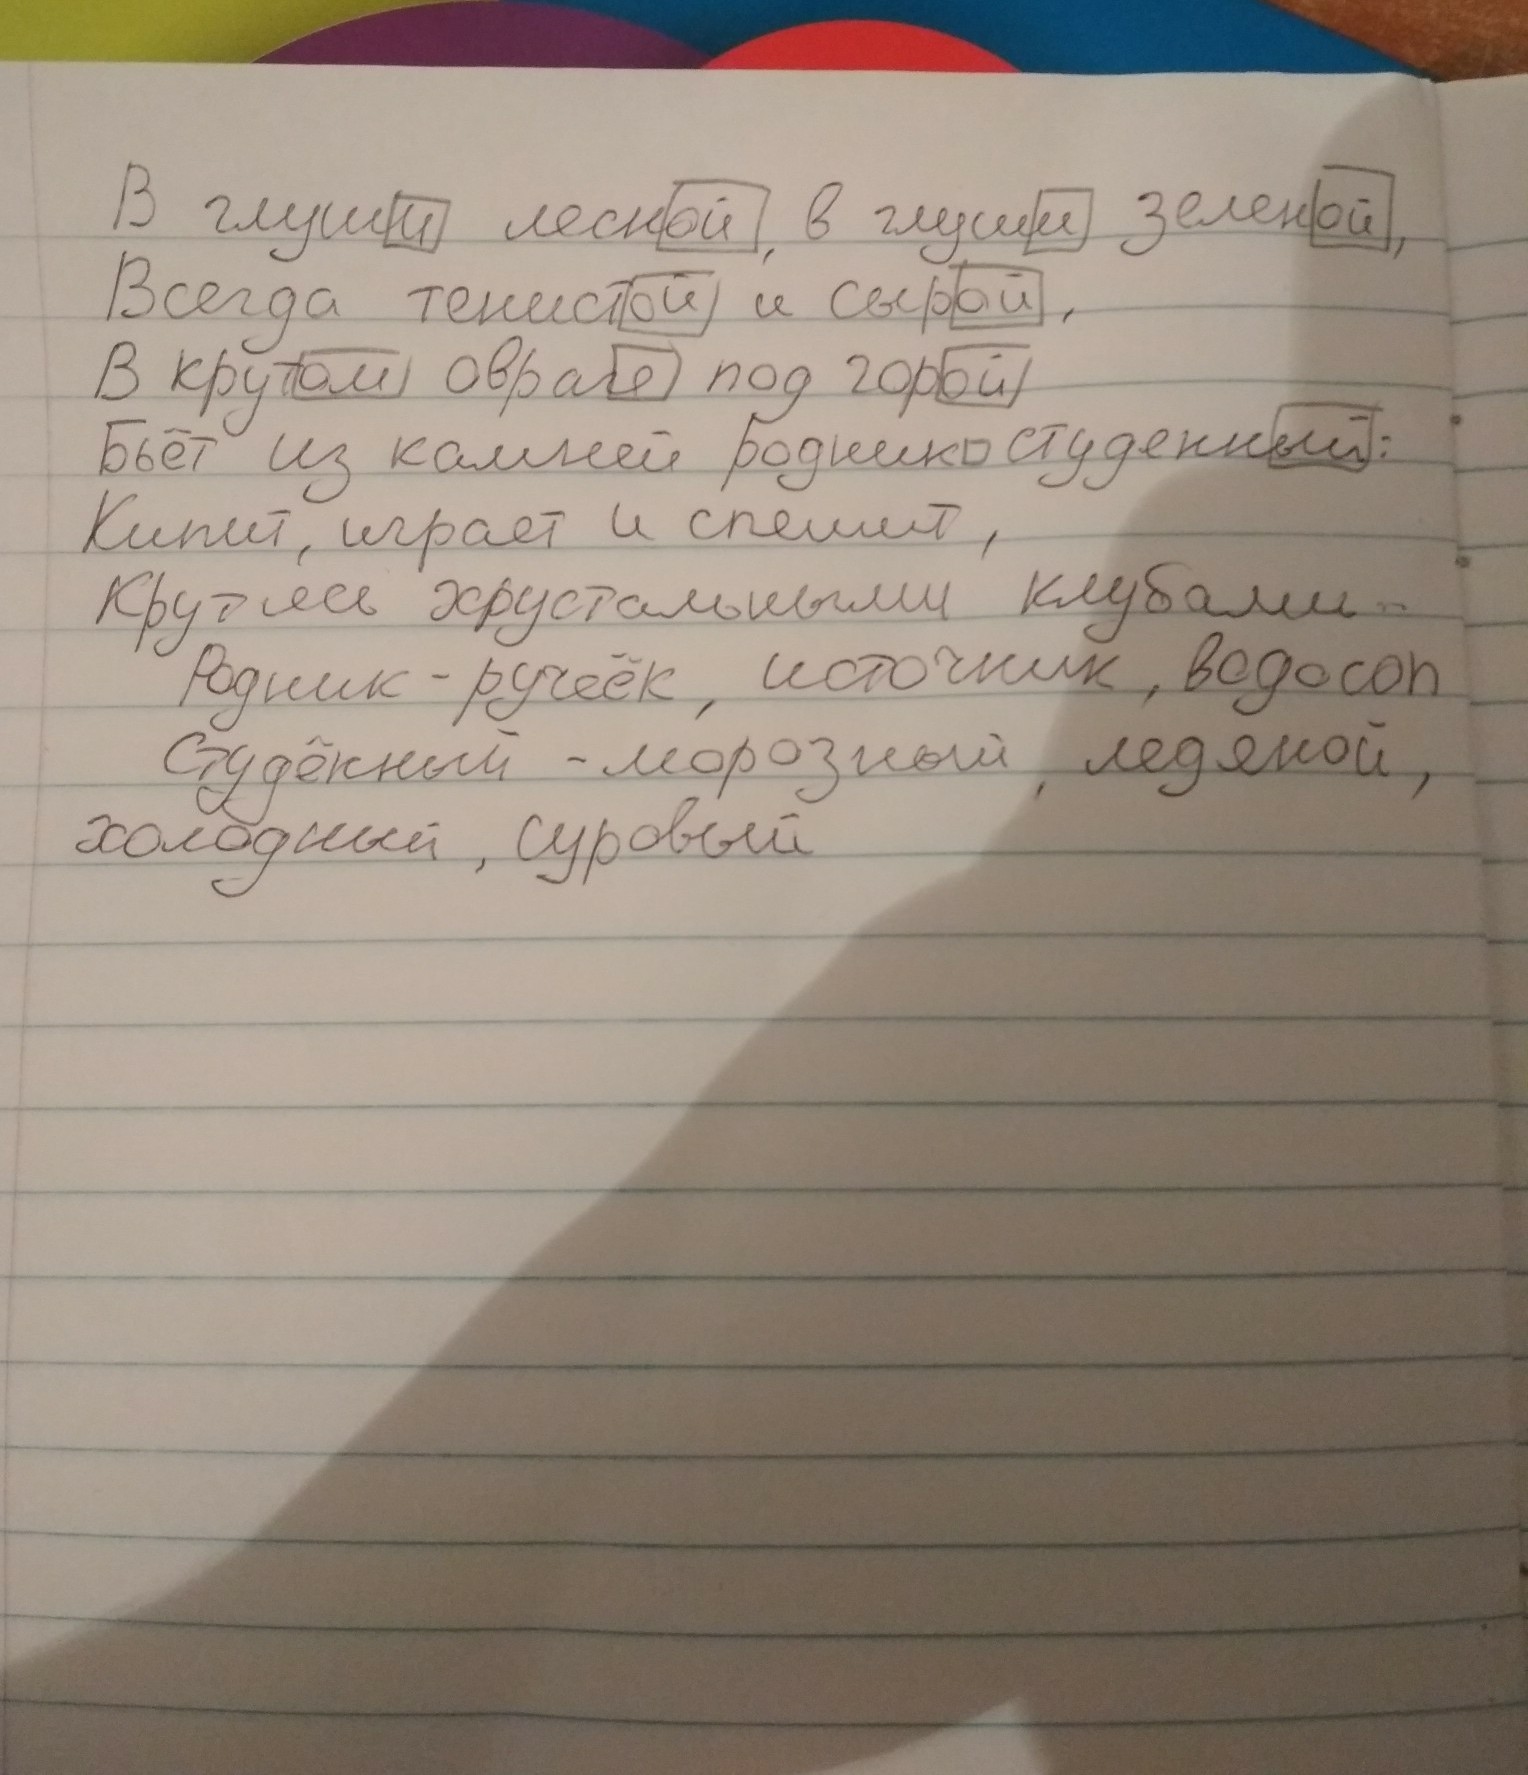 В глуши лесной, в глуши зеленой,
Всегда тенистой и сырой,
В крутом овраге под горой
Бьёт из камней родник студенный:
Кипит, играет и спешит,
Крутясь хрустальными клубами -
Родник - ручеёк, источник, водосоп
Студённый - морозный, ледяной,
холодный, суровый